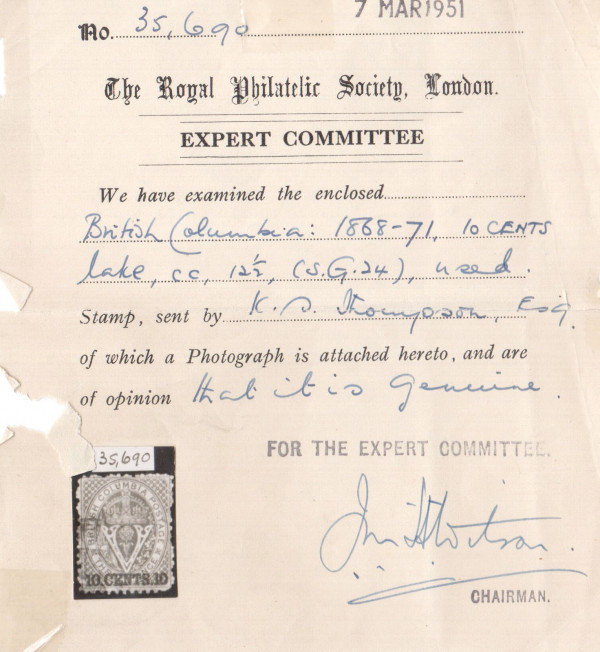 7 MAR 1951
No. 35,690
The Royal Philatelic Society, London.
EXPERT COMMITTEE
We have examined the enclosed
British Columbia: 1868-71, 10 CENTS
lake, cc, 12½, (S.G.24), used.
Stamp, sent by K. D. Thompson, Esq.
of which a Photograph is attached hereto, and are
of opinion that it is genuine.
FOR THE EXPERT COMMITTEE.
35,690
COLUMBIA POSTAGE
V
10.CENTS.10
CHAIRMAN.